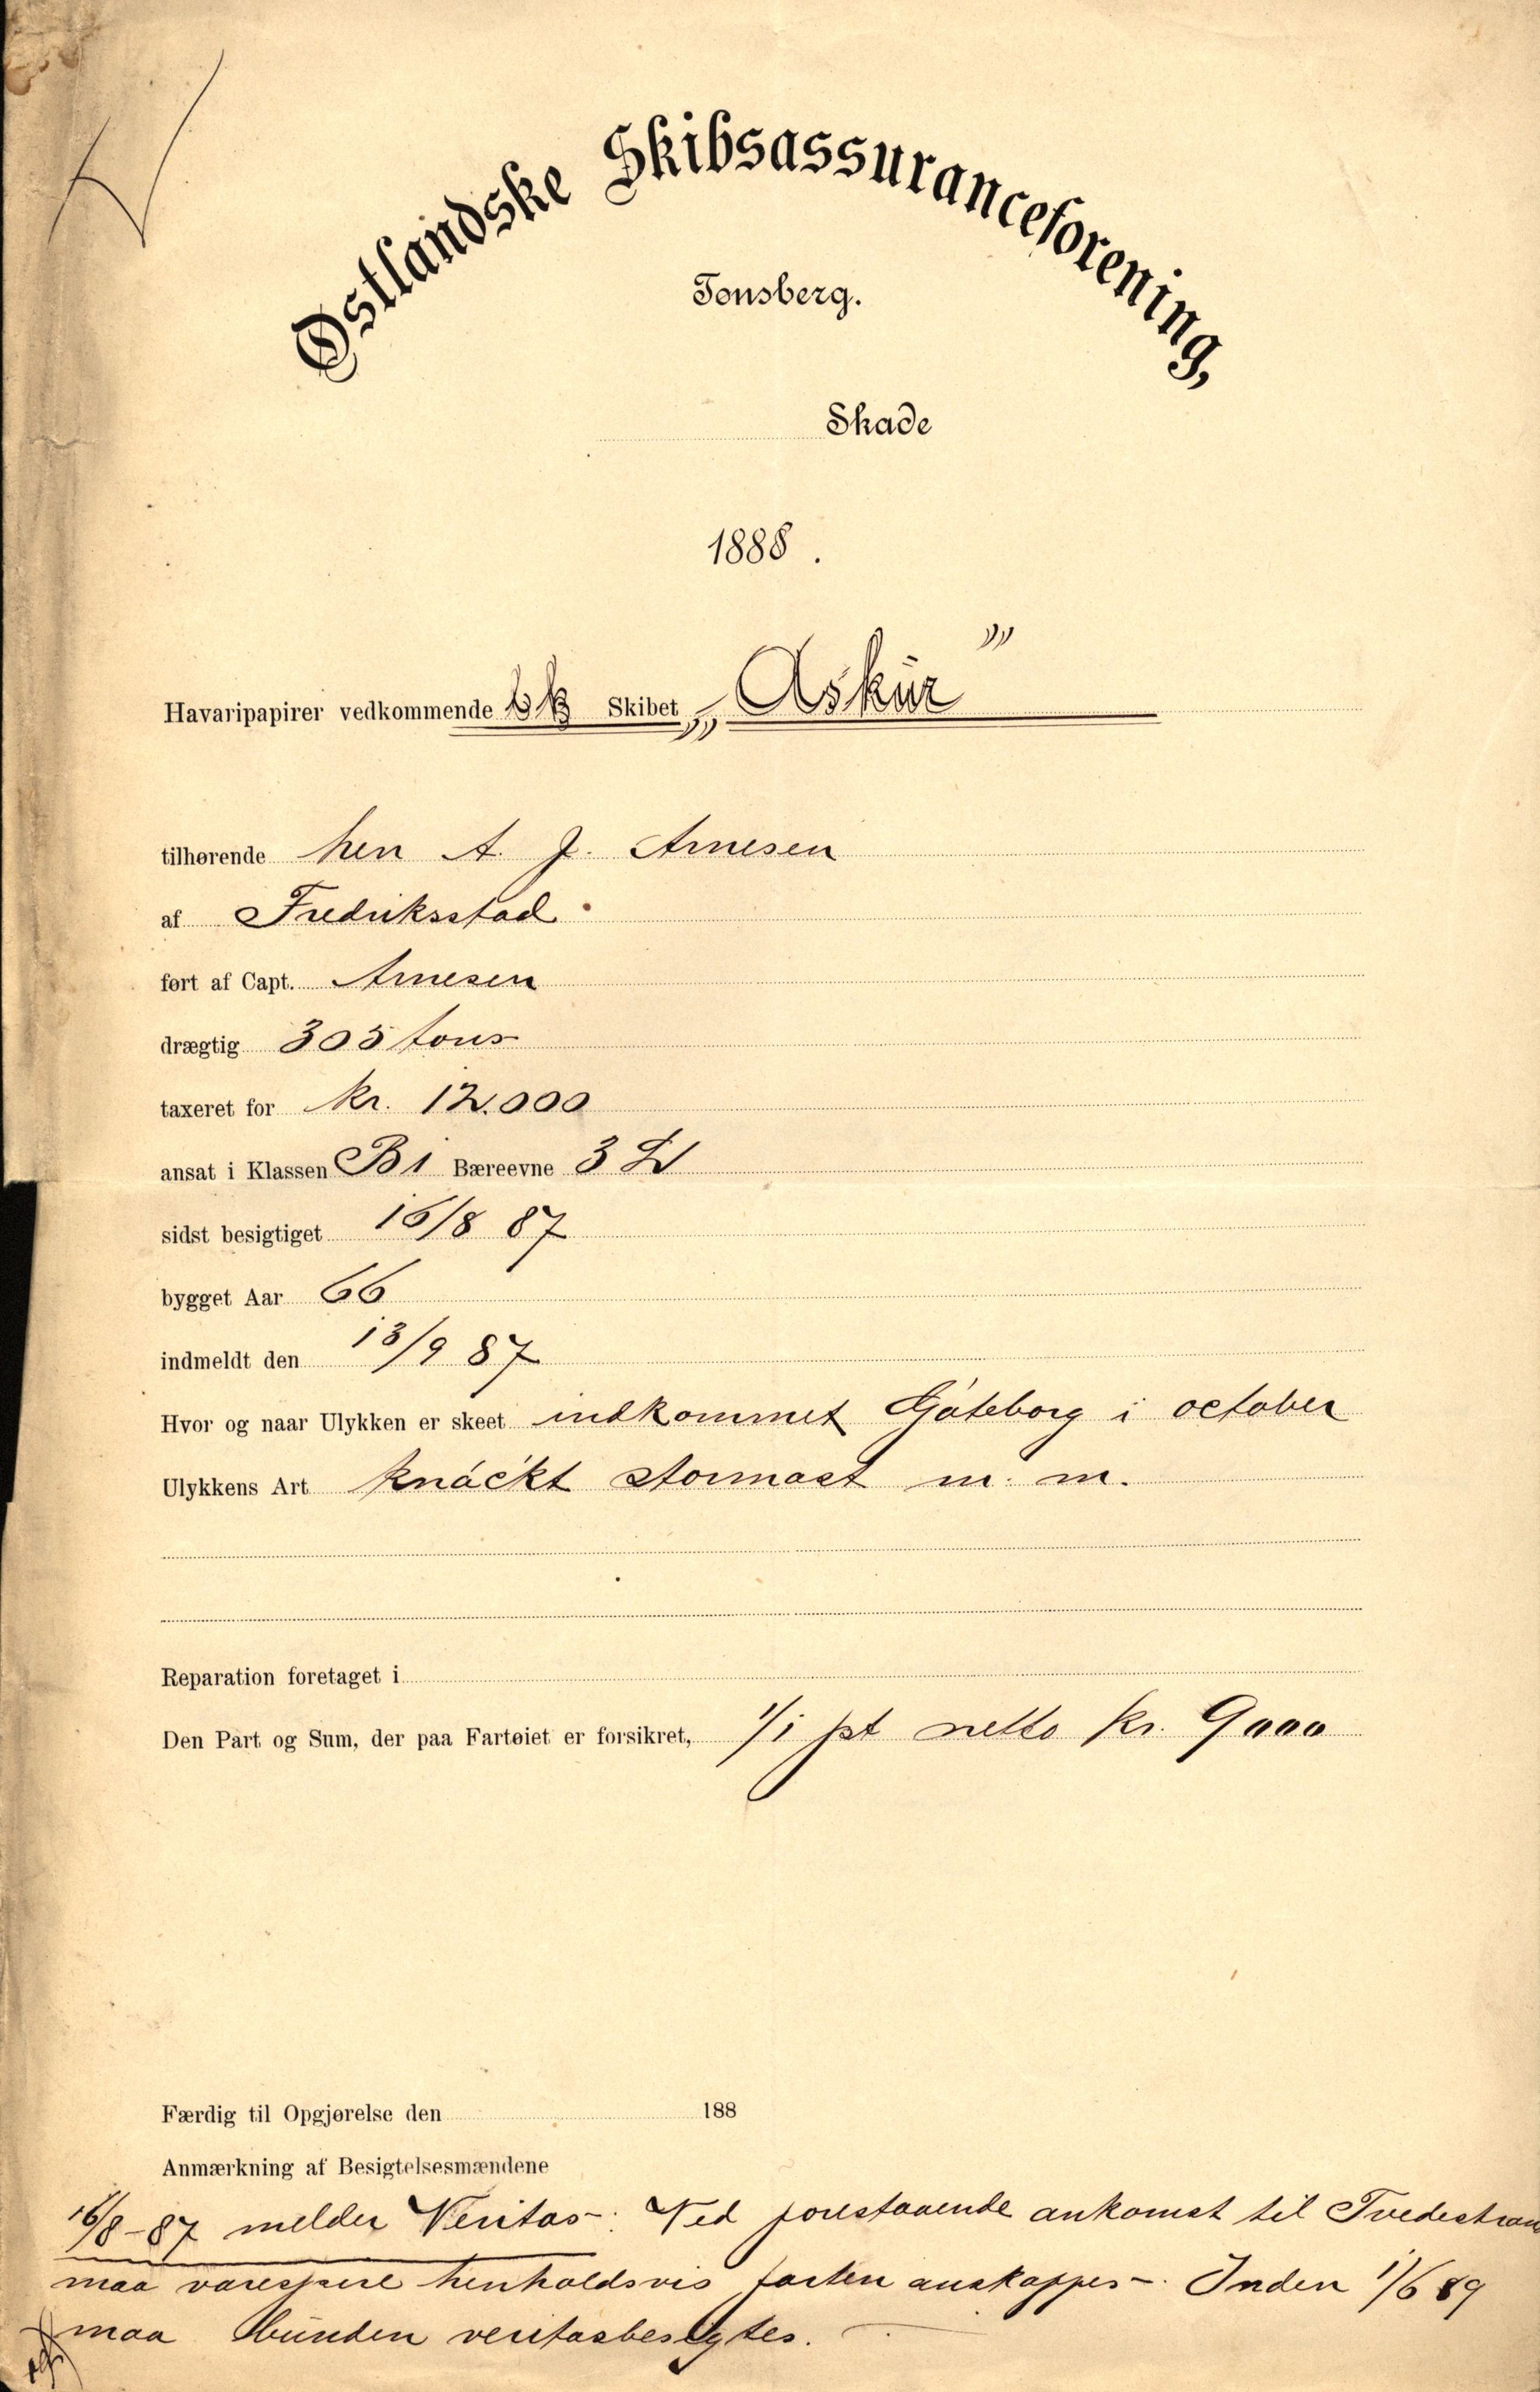 Østlandske Skibsassuranceforening,
Tønsberg.
Skade
1888.
Havaripapirer vedkommende Bk Skibet „Askur"
tilhørende herr A. J. Arnesen
af Fredriksstad
ført af Capt. Arnesen
drægtig 305 tons
taxeret for kr. 12.000
ansat i Klassen B1 Bæreevne 3 L
sidst besigtiget 16/8 87
bygget Aar 66
indmeldt den 13/9 87
Hvor og naar Ulykken er skeet indkommet Gøteborg i october
Ulykkens Art knäckt stormast m. m.
Reparation foretaget i
Den Part og Sum, der paa Fartøiet er forsikret, 1/1 pt netto kr. 9000
Færdig til Opgjørelse den 188
Anmærkning af Besigtelsesmændene
16/8-87 melder Veritas: Ved forestaaende ankomst til Tvedestran
maa varespire henholdsvis anskaffes. Inden 1/6 89
maa bunden veritasbesigtes.